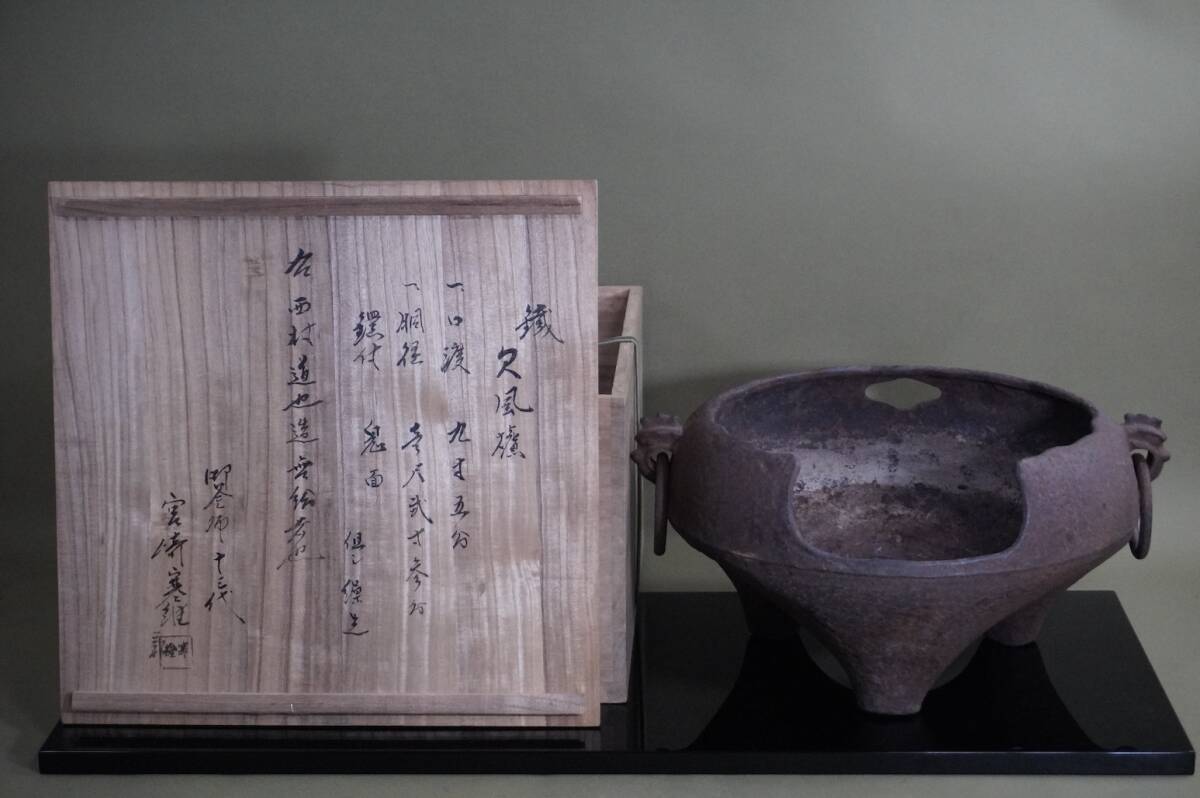 鐵
欠風爐
一、口渡 九寸五分
一、胴径 壱尺弐寸参分
鐶付 鬼面 但シ 繰上
右 西村道也造
御釜師十三代
宮崎寒雉